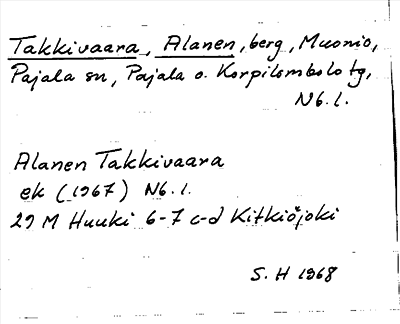 Takkivaara, Alanen, berg, Muonio,
Pajala sn, Pajala o. Korpilombolo tg,
Nb. l.
Alanen Takkivaara
ek (1967) Nb. l.
29 M Huuki 6-7 c-d Kitkiöjoki
S. H 1968